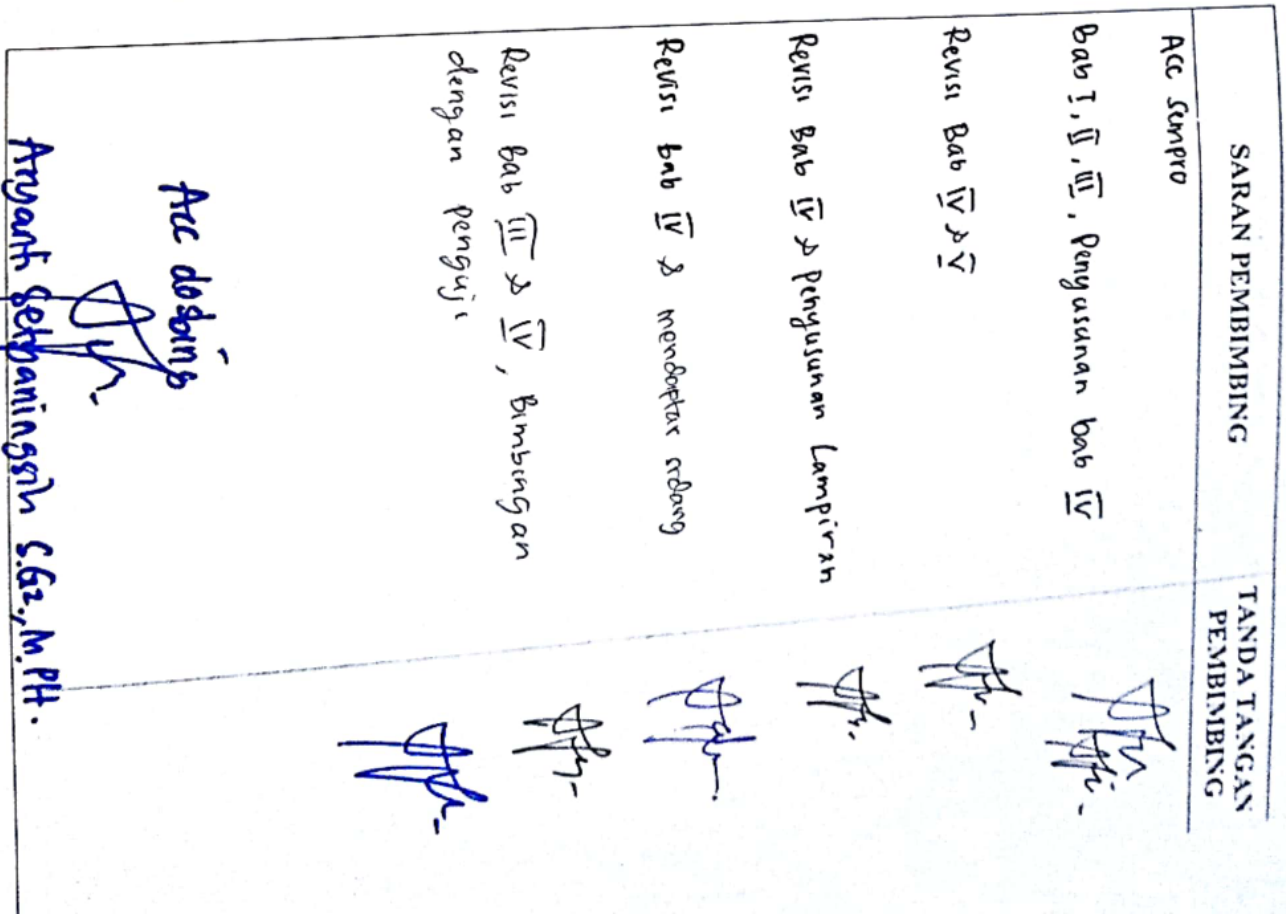 SARAN PEMBIMBING
TANDA TANGAN
PEMBIMBING
Acc sempro
Bab I, II, III, Penyusunan bab IV
Revisi Bab IV & V
Revisi Bab IV & Penyusunan Lampiran
Revisi bab IV & mendaptar sidang
Revisi Bab III & IV, Bimbingan
dengan penguji
Acc dosbing
Aryanti Setyaningsih S.Gz., M.PH.